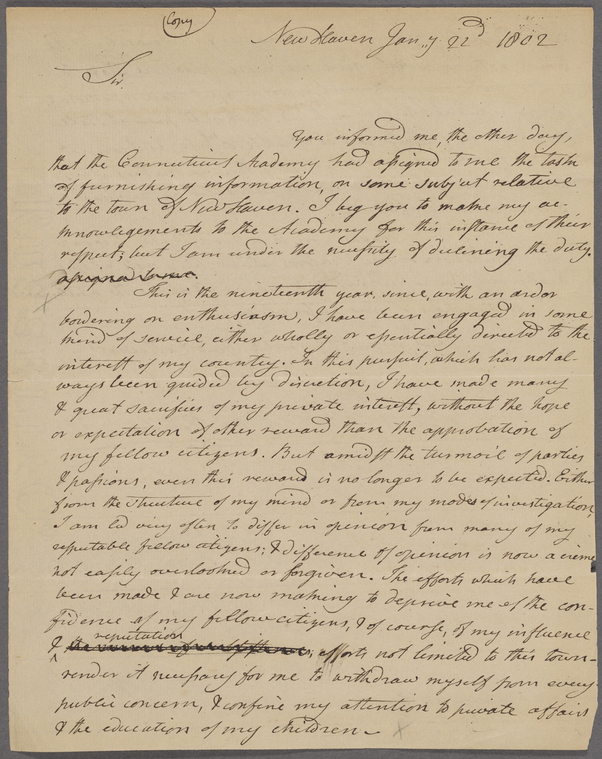 Copy
New Haven Jan.y 22d 1802
Sir.
You informed me, the other day,
that the Connecticut Academy had assigned to me the task
of furnishing information, on some subject relative
to the town of New Haven. I beg you to make my ac-
knowlegements to the Academy for this instance of their
respect; but I am under the necessity of declining the duty.
assigned to me.
This is the nineteenth year, since, with an ardor
bordering on enthusiasm, I have been engaged in some
kind of service, either wholly or essentially directed to the
interest of my country. In this pursuit, which has not al-
ways been guided by discretion, I have made many
& great sacrifices of my private interest, without the hope
or expectation of other reward than the approbation of
my fellow citizens. But amidst the turmoil of parties
& passions, even this reward is no longer to be expected. Either
from the structure of my mind or from my modes of investigation,
I am led very often to differ in opinion from many of my
respectable fellow citizens; & difference of opinion is now a crime
not easily overlooked or forgiven. The efforts which have
been made & are now making to deprive me of the con-
fidence of my fellow citizens, & of course, of my influence
& reputation; efforts not limited to this town-
render it necessary for me to withdraw myself from every
public concern, & confine my attention to private affairs
& the education of my children.